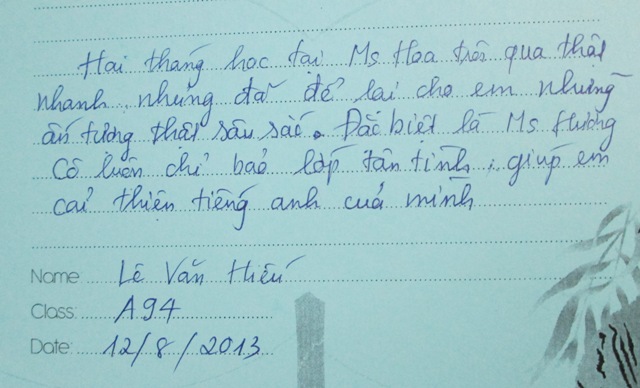 Hai tháng học tại Ms Hoa trôi qua thật
nhanh, nhưng đã để lại cho em những
ấn tượng thật sâu sắc. Đặc biệt là Ms Hương
Cô luôn chỉ bảo lớp tận tình, giúp em
cải thiện tiếng anh của mình
Name Lê Văn Hiếu
Class: A94
Date: 12/8/2013